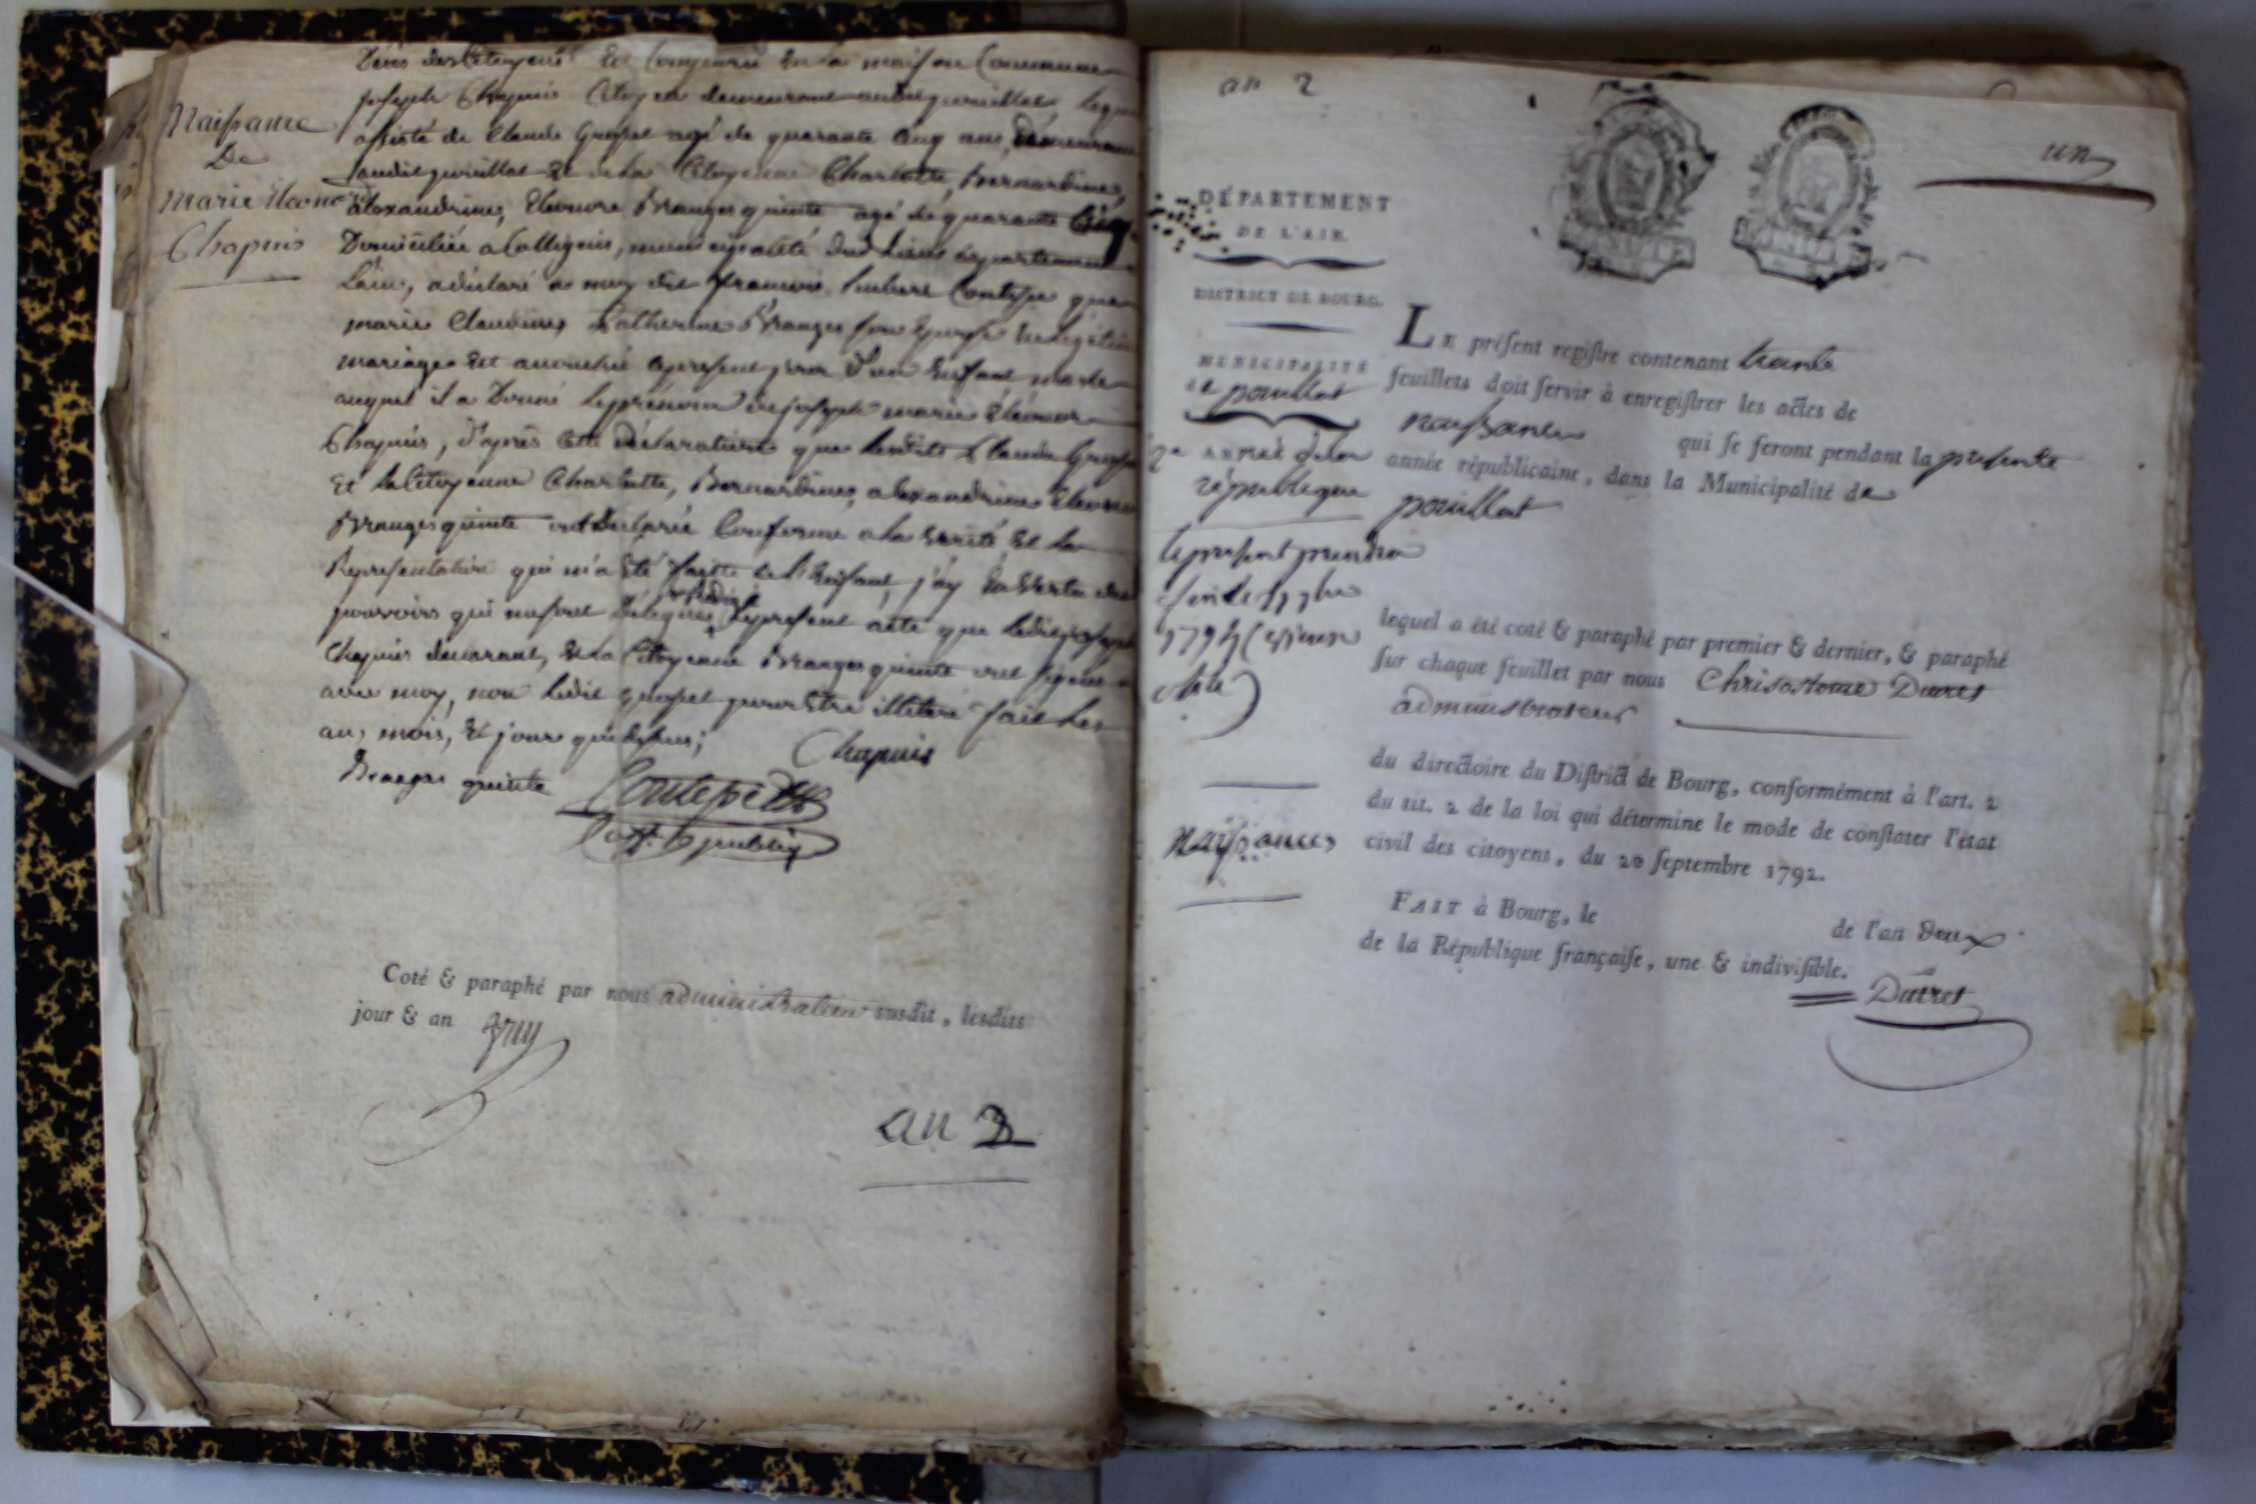 Naissance
De
Marie Eleonor
Chapuis
des Citoyens Et Comparu En la maison Commune
joseph Chapuis Citoyen demeurant audit pouillat lequel
assisté de Claude Guipet agé de quarante Cinq ans, demeurant
audit pouillat Et de la Citoyenne Charlotte, Bernardine,
alexandrine, Eleonore Branges quinte agé de quarante Cinq
Domiciliée a Colligniа, municipalité dud. Lieu departement
Lain, a déclaré a moy dit Contepe que
marie Claudine, Catherine Branges son Epouse En légitime
mariage Est accouchée apresent jour d'un Enfant masle
auquel il a Donné le prenom de joseph marie Eléonor
Chapuis, d'après Cette déclaration que lesdits Claude Guipet
Et la Citoyenne Charlotte, Bernardine, alexandrine Eleonore
Branges quinte ont Declarée Conforme a la verité Et la
Representation qui m'a Eté faitte de l'Enfant, j'ay En vertu des
pouvoirs qui me sont Délégués, Rédigé le present acte que ledit joseph
Chapuis déclarant, Et la Citoyenne Branges quinte ont signé
avec moy, non ledit Guipet pour Etre illiteré fait les
an, mois, Et jour que dessus;
Chapuis
Branges quinte
Contepe
off. publiq
Coté & paraphé par nous administrateur susdit, lesdits
jour & an
an 2
an 2
un
DÉPARTEMENT
DE L'AIN.
DISTRICT DE BOURG.
MUNICIPALITÉ
de pouillat
2e ANNÉE de la
république
le present prendra
fin le 7bre
1794 (vieux
stile)
naissances
LE présent registre contenant trente
feuillets doit servir à enregistrer les actes de
naissances qui se feront pendant la presente
année républicaine, dans la Municipalité de
pouillat
lequel a été coté & paraphé par premier & dernier, & paraphé
sur chaque feuillet par nous Chrisostome Duret
administrateur
du directoire du District de Bourg, conformément à l'art. 2
du tit. 2 de la loi qui détermine le mode de constater l'état
civil des citoyens, du 20 septembre 1792.
FAIT à Bourg, le de l'an deux
de la République française, une & indivisible.
Duret